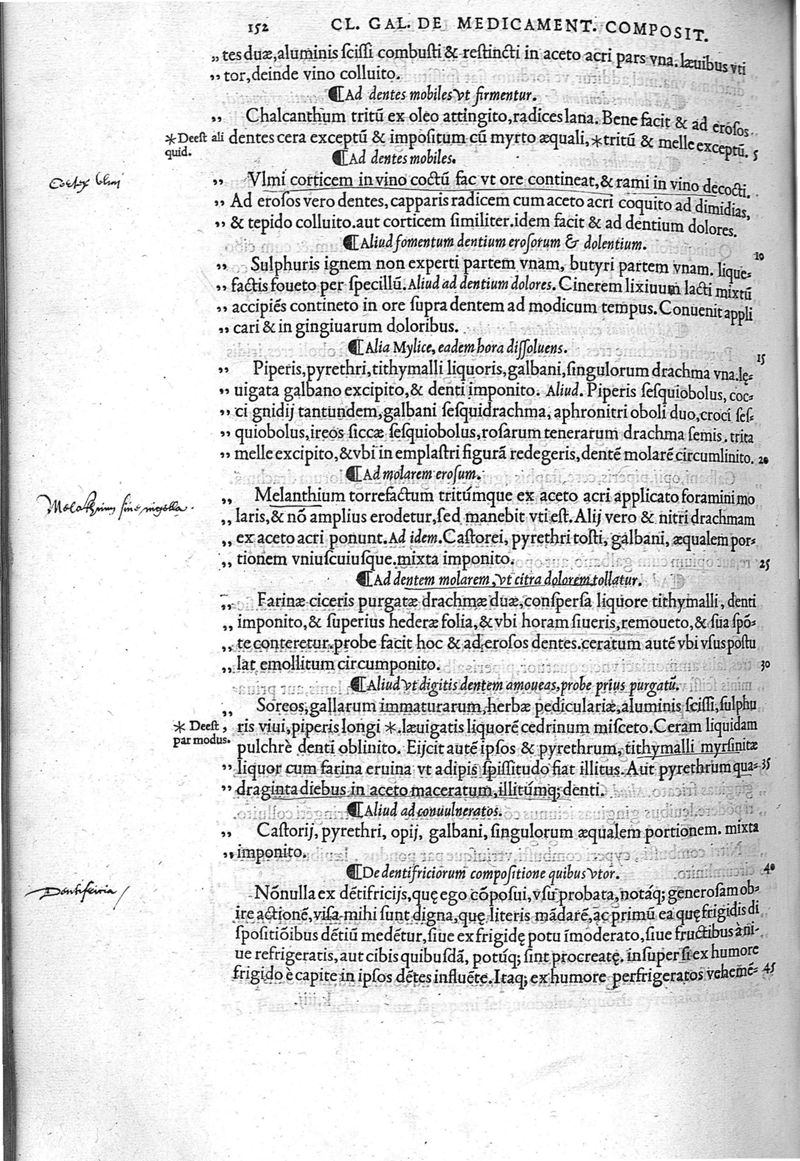 152 CL. GAL. DE MEDICAMENT. COMPOSIT.
„ tes duæ, aluminis ſciſſi combuſti & reſtincti in aceto acri pars vna. læuibus vti
„ tor, deinde vino colluito.
¶Ad dentes mobiles vt firmentur.
„ Chalcanthum tritū ex oleo attingito, radices lana. Bene facit & ad eroſos
*Deeſt ali
quid.
dentes cera exceptū & impoſitum cū myrto æquali, *tritū & melle exceptū. 5
¶Ad dentes mobiles.
Cortex Vlmi
„ Vlmi corticem in vino coctū fac vt ore contineat, & rami in vino decocti.
„ Ad eroſos vero dentes, capparis radicem cum aceto acri coquito ad dimidias,
„ & tepido colluito. aut corticem ſimiliter. idem facit & ad dentium dolores.
¶Aliud fomentum dentium eroſorum & dolentium. 10
„ Sulphuris ignem non experti partem vnam, butyri partem vnam. lique-
„ factis foueto per ſpecillū. Aliud ad dentium dolores. Cinerem lixiuum lacti mixtū
„ accipiēs contineto in ore ſupra dentem ad modicum tempus. Conuenit appli
„ cari & in gingiuarum doloribus.
¶Alia Mylice, eadem hora diſſoluens. 15
„ Piperis, pyrethri, tithymalli liquoris, galbani, ſingulorum drachma vna. lę-
„ uigata galbano excipito, & denti imponito. Aliud. Piperis ſeſquiobolus, coc-
„ ci gnidij tantundem, galbani ſeſquidrachma, aphronitri oboli duo, croci ſeſ-
„ quiobolus, ireos ſiccæ ſeſquiobolus, roſarum tenerarum drachma ſemis. trita
„ melle excipito, & vbi in emplaſtri figurā redegeris, dentē molarē circumlinito. 20
¶Ad molarem eroſum.
Melathium ſiue nigella.
„ Melanthium torrefactum tritúmque ex aceto acri applicato foramini mo
„ laris, & nō amplius erodetur, ſed manebit vti eſt. Alij vero & nitri drachmam
„ ex aceto acri ponunt. Ad idem. Caſtorei, pyrethri toſti, galbani, æqualem por-
„ tionem vniuſcuiuſque. mixta imponito. 25
¶Ad dentem molarem, vt citra dolorem tollatur.
„ Farinæ ciceris purgatæ drachmæ duæ, conſperſa liquore tithymalli, denti
„ imponito, & ſuperius hederæ folia, & vbi horam ſiueris, remoueto, & ſua ſpō-
„ te conteretur. probe facit hoc & ad eroſos dentes. ceratum autē vbi vſus poſtu
„ lat emollitum circumponito. 30
¶Aliud vt digitis dentem amoueas, probe prius purgatū.
„ Soreos, gallarum immaturarum, herbæ pediculariæ, aluminis ſciſſi, ſulphu
* Deeſt,
par modus.
ris viui, piperis longi *. læuigatis liquorē cedrinum miſceto. Ceram liquidam
pulchrè denti oblinito. Eijcit autē ipſos & pyrethrum, tithymalli myrſinitæ
„ liquor cum farina eruina vt adipis ſpiſſitudo fiat illitus. Aut pyrethrum qua- 35
„ draginta diebus in aceto maceratum, illitúmq; denti.
¶Aliud ad conuulneratos.
„ Caſtorij, pyrethri, opij, galbani, ſingulorum æqualem portionem. mixta
„ imponito.
¶De dentifriciorum compoſitione quibus vtor. 40
Dentifricia
Nōnulla ex dētifricijs, quę ego cōpoſui, vſu probata, notáq; generoſam ob-
ire actionē, viſa mihi ſunt digna, quę literis mādarē, ac primū ea quę frigidis di
ſpoſitiōibus dētiū medētur, ſiue ex frigidę potu īmoderato, ſiue fructibus à ni-
ue refrigeratis, aut cibis quibuſdā, potúq; ſint procreatę. inſuper ſi ex humore
frigido è capite in ipſos dētes influēte. Itaq; ex humore perfrigeratos vehemē- 45